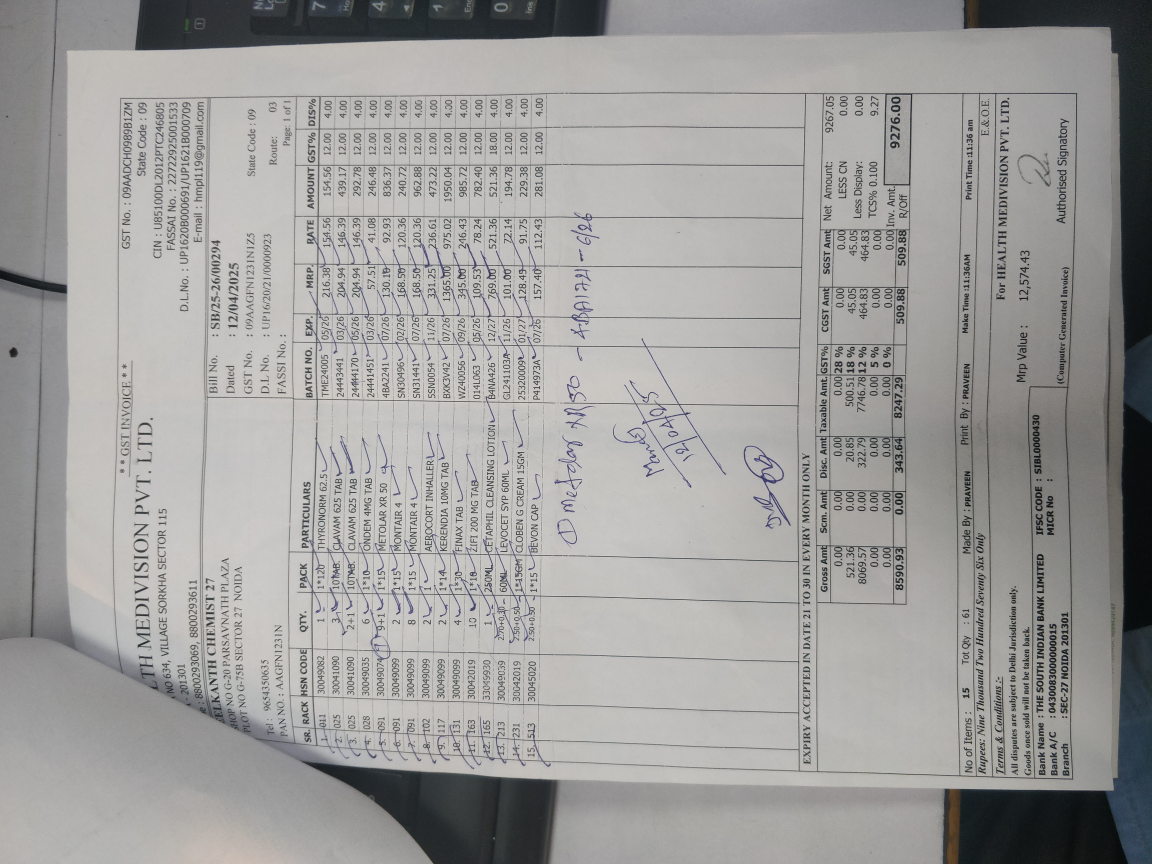 ** GST INVOICE **
GST No. : 09AADCH0989B1ZM
TH MEDIVISION PVT. LTD.
State Code : 09
NO 634, VILLAGE SORKHA SECTOR 115
CIN : U85100DL2012PTC246805
201301
FASSAI No. : 22722925001533
: 8800293069, 8800293611
D.L.No. : UP1620B000691/UP1621B000709
E-mail : hmpl119@gmail.com
ELKANTH CHEMIST 27
SHOP NO G-20 PARSAVNATH PLAZA
PLOT NO G-75B SECTOR 27 NOIDA
Tel : 9654350635
PAN NO. : AAGFN1231N
Bill No. : SB/25-26/00294
Dated : 12/04/2025
GST No. : 09AAGFN1231N1Z5 State Code : 09
D.L No. : UP16/20/21/0000923 Route: 03
FASSI No. : Page: 1 of 1
SR. RACK HSN CODE QTY. PACK PARTICULARS BATCH NO. EXP. MRP. RATE AMOUNT GST% DIS%
1. 011 30049082 1 1*120 THYRONORM 62.5 TME24005 05/26 216.38 154.56 154.56 12.00 4.00
2. 025 30041090 3 10TAB CLAVAM 625 TAB 24443441 03/26 204.94 146.39 439.17 12.00 4.00
3. 025 30041090 2+1 10TAB CLAVAM 625 TAB 24444170 05/26 204.94 146.39 292.78 12.00 4.00
4. 028 30049035 6 1*10 ONDEM 4MG TAB 24441451 03/26 57.51 41.08 246.48 12.00 4.00
5. 091 30049074 9+1 1*15 METOLAR XR 50 4BA2241 07/26 130.10 92.93 836.37 12.00 4.00
6. 091 30049099 2 1*15 MONTAIR 4 SN30496 02/26 168.50 120.36 240.72 12.00 4.00
7. 091 30049099 8 1*15 MONTAIR 4 SN31441 07/26 168.50 120.36 962.88 12.00 4.00
8. 102 30049099 2 1 AEROCORT INHALLER SSN0054 11/26 331.25 236.61 473.22 12.00 4.00
9. 117 30049099 2 1*14 KERENDIA 10MG TAB BXK3V42 07/26 1365.00 975.02 1950.04 12.00 4.00
10. 131 30049099 4 1*30 FINAX TAB WZ40056 09/26 345.00 246.43 985.72 12.00 4.00
11. 163 30042019 10 1*10 ZIFI 200 MG TAB 014L063 05/26 109.53 78.24 782.40 12.00 4.00
12. 165 33049930 1 250ML CETAPHIL CLEANSING LOTION B4NA426 12/27 769.00 521.36 521.36 18.00 4.00
13. 213 30049039 2.70+0.30 60ML LEVOCET SYP 60ML GL241103A 11/26 101.00 72.14 194.78 12.00 4.00
14. 231 30042019 2.50+0.50 1*15GM CLOBEN G CREAM 15GM 25320009 01/27 128.45 91.75 229.38 12.00 4.00
15. 513 30045020 2.50+0.50 1*15 BEVON CAP P414973A 07/26 157.40 112.43 281.08 12.00 4.00
① Metolar XR 50 - 4BA1721 - 6/26
EXPIRY ACCEPTED IN DATE 21 TO 30 IN EVERY MONTH ONLY
Gross Amt Scm. Amt Disc. Amt Taxable Amt. GST% CGST Amt SGST Amt
0.00 0.00 0.00 0.00 28 % 0.00 0.00
521.36 0.00 20.85 500.51 18 % 45.05 45.05
8069.57 0.00 322.79 7746.78 12 % 464.83 464.83
0.00 0.00 0.00 0.00 5 % 0.00 0.00
0.00 0.00 0.00 0.00 0 % 0.00 0.00
8590.93 0.00 343.64 8247.29 509.88 509.88
Net Amount: 9267.05
LESS CN 0.00
Less Display: 0.00
TCS% 0.100 9.27
Inv. Amt. 9276.00
R/Off
No of Items : 15 Tot Qty : 61 Made By : PRAVEEN Print By : PRAVEEN Make Time :11:36AM Print Time :11:36 am
Rupees: Nine Thousand Two Hundred Seventy Six Only
E.& O.E.
Terms & Conditions :-
All disputes are subject to Delhi Jurisdiction only.
Goods once sold will not be taken back.
Mrp Value : 12,574.43
For HEALTH MEDIVISION PVT. LTD.
Bank Name : THE SOUTH INDIAN BANK LIMITED IFSC CODE : SIBL0000430
Bank A/C : 0430083000000015 MICR No :
Branch : SEC-27 NOIDA 201301
(Computer Generated Invoice)
Authorised Signatory